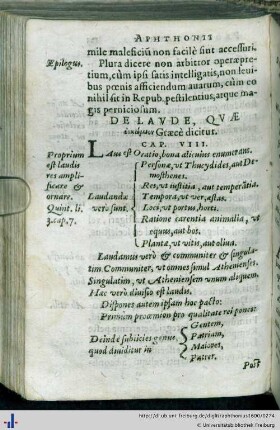 APHTHONII
mile maleficiū non facilè sint accessuri.
Epilogus. Plura dicere non arbitror operæpre-
tium, cùm ipsi satis intelligatis, non leui-
bus pœnis afficiendum auarum, cùm eo
nihil sit in Repub. pestilentius, atque ma-
gis perniciosum.
DE LAVDE, QVÆ
Græcè dicitur.
CAP. VIII.
Proprium est laudis res ampli-
ficare & ornare.
Quint. li. 3. cap. 7.
Laus est Oratio, bona alicuius enumerans.
Laudandæ verò sunt,
Personæ, vt Thucydides, aut De-
mosthenes.
Res, vt iustitia, aut temperātia.
Tempora, vt ver, æstas.
Loci, vt portus, hortus.
Ratione carentia animalia, vt
equus, aut bos.
Plantæ, vt vitis, aut oliua.
Laudamus verò & communiter & singula-
tim. Communiter, vt omnes simul Athenienses.
Singulatim, vt Atheniensem vnum aliquem.
Hæc verò diuisio est laudis.
Dispones autem ipsam hoc pacto:
Primùm proœmion pro qualitate rei pones:
Deinde subiicies genus,
quod diuiditur in
Gentem,
Patriam,
Maiores,
Patres.
Post
http://dl.ub.uni-freiburg.de/diglit/aphthonius1600/0274
© Universitätsbibliothek Freiburg